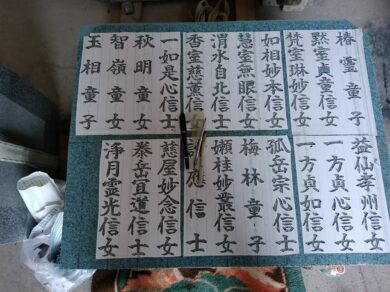 椿霊童子
黙室貞童信女
梵室琳妙信女
如相妙本信女
慧室無眼信女
渭水自北信士
香室慈薫信士
一如是心信士
秋明童女
智嶺童女
玉相童子
益仙孝州信女
一方貞心信女
一方貞如信女
狐岳宗心信士
梅林童子
嫩桂妙叢信女
應信士
慈屋妙念信女
泰岳宜道信士
浄月霊光信女